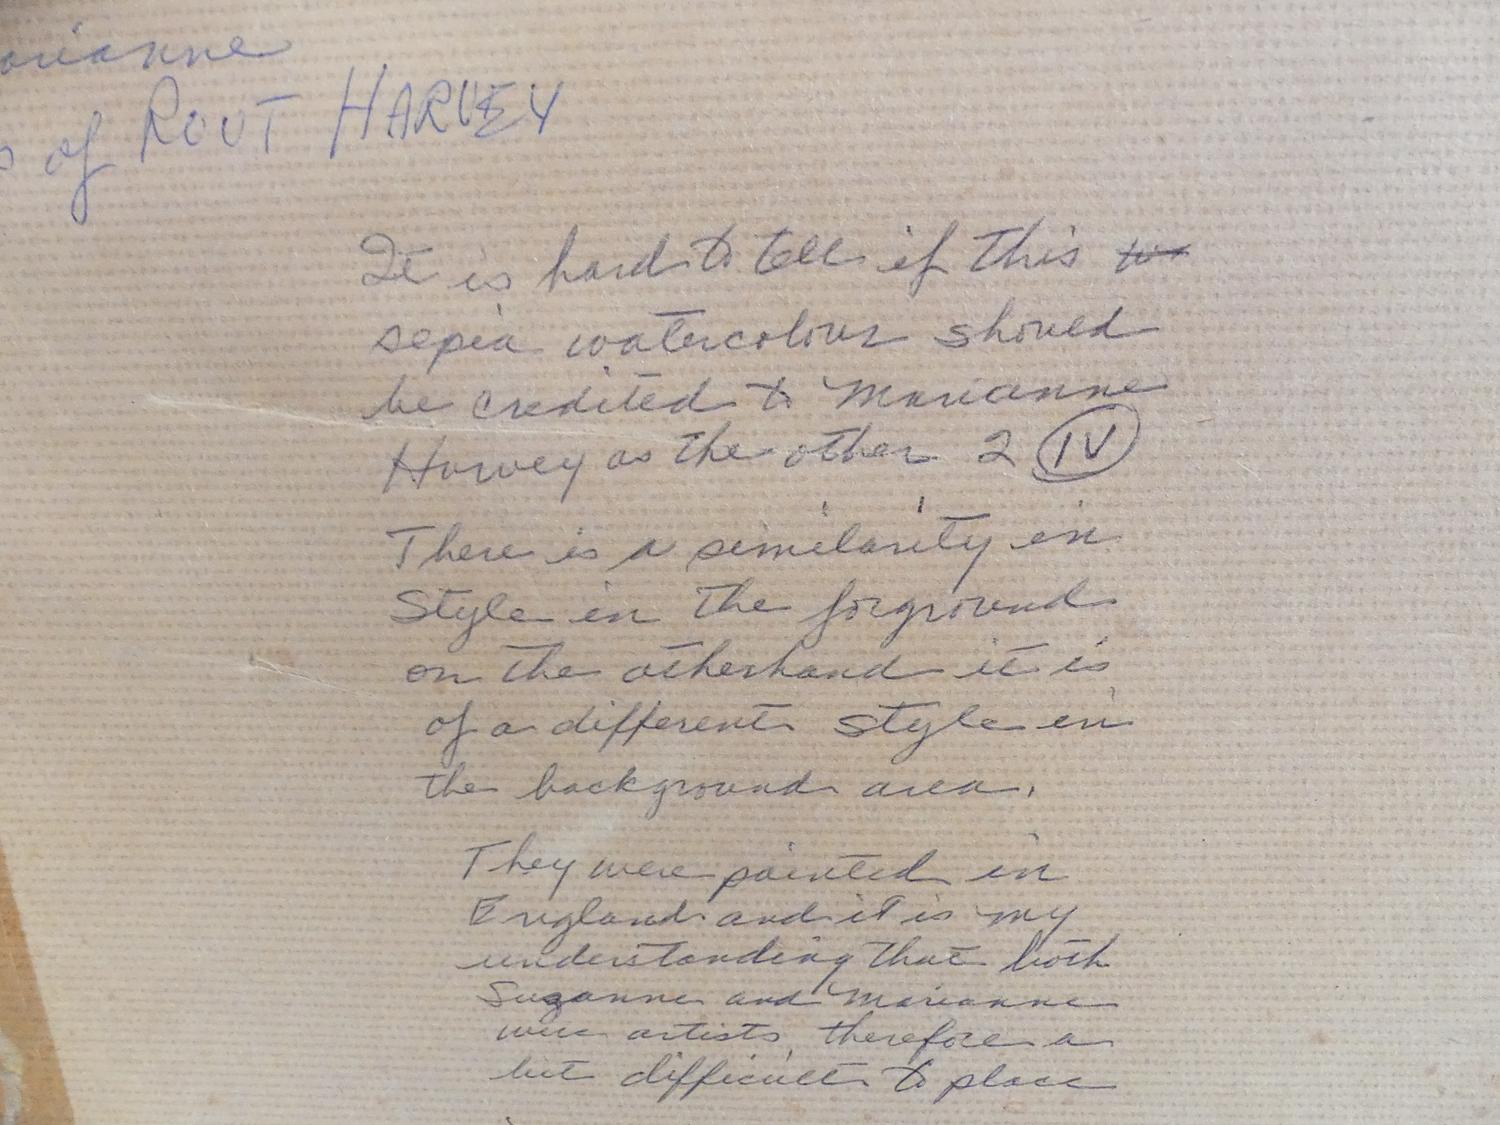 arianne
of ROUT HARVEY
It is hard to tell if this
sepia watercolour should
be credited to Marianne
Harvey as the other 2 IV
There is a similarity in
Style in the forground
on the otherhand it is
of a different style in
the background area.
They were painted in
England and it is my
understanding that both
Suzanne and Marianne
were artists, therefore a
bit difficult to place